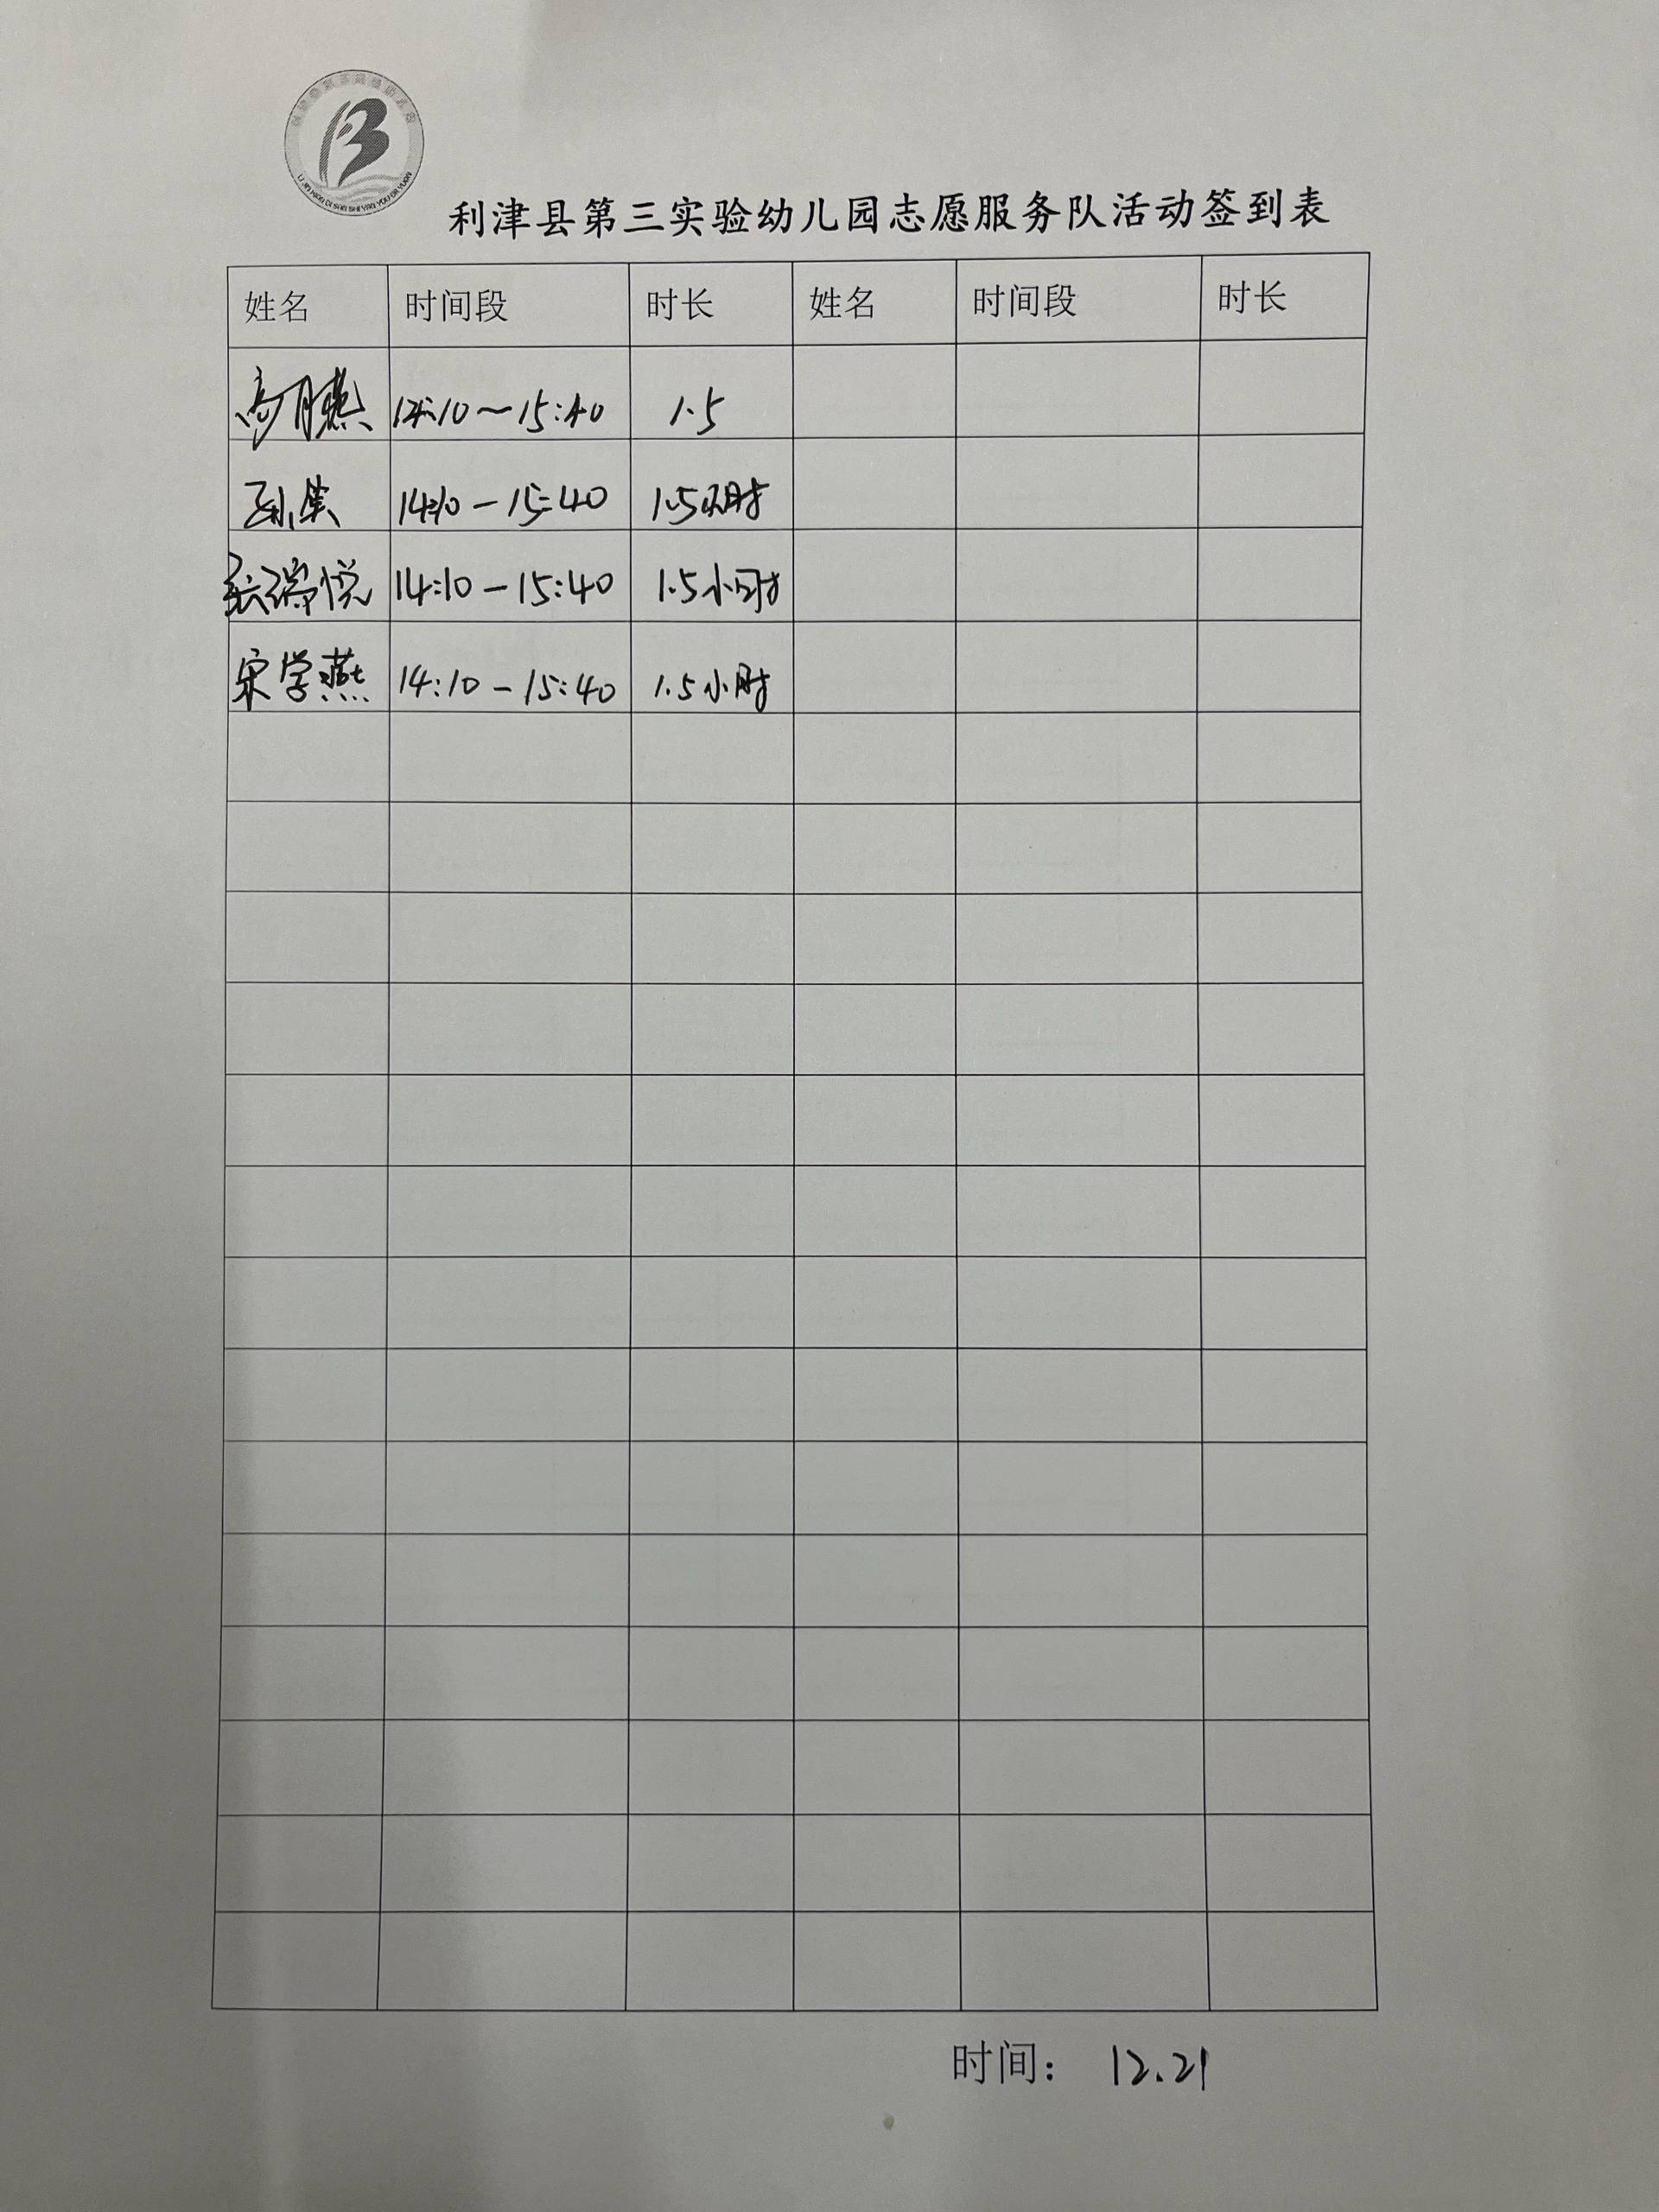 LI JIN XIAN DI SAN SHI YAN YOU ER YUAN
利津县第三实验幼儿园志愿服务队活动签到表
姓名 时间段 时长 姓名 时间段 时长
高月燕 14:10～15:40 1.5
孙 14:10-15:40 1.5小时
张瑞悦 14:10-15:40 1.5小时
宋学燕 14:10-15:40 1.5小时
时间： 12.21